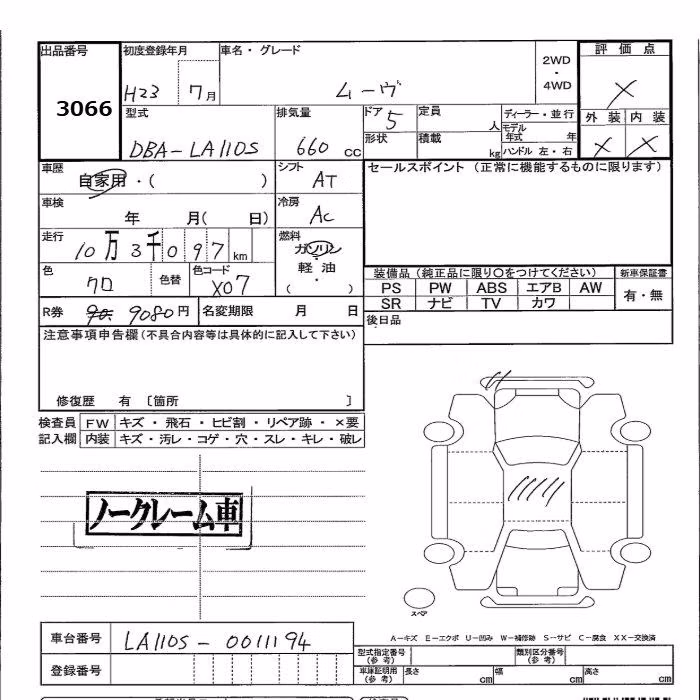 出品番号 初度登録年月 車名・グレード 評価点
3066 H23 7月 ムーヴ 2WD・4WD X
型式 排気量 ドア 定員 ディーラー・並行 外装 内装
DBA-LA110S 660cc 5 人 モデル年式 年 X X
形状 積載 kg ハンドル 左・右
車歴 自家用・( ) シフト AT セールスポイント (正常に機能するものに限ります)
車検 年 月( 日) 冷房 AC
走行 10万3千097km 燃料 ガソリン・軽油・( )
色 クロ 色替 色コード X07
装備品 (純正品に限り○をつけてください) 新車保証書
PS PW ABS エアB AW 有・無
SR ナビ TV カワ
R券 9080円 名変期限 月 日 後日品
注意事項申告欄(不具合内容等は具体的に記入して下さい)
修復歴 有 〔箇所 〕
検査員記入欄 FW キズ・飛石・ヒビ割・リペア跡・×要
内装 キズ・汚レ・コゲ・穴・スレ・キレ・破レ
ノークレーム車
スペア
A−キズ E−エクボ U−凹み W−補修跡 S−サビ C−腐食 XX−交換済
車台番号 LA110S-0011194
登録番号
型式指定番号(参考) 類別区分番号(参考)
車庫証明用(参考) 長さ cm 幅 cm 高さ cm